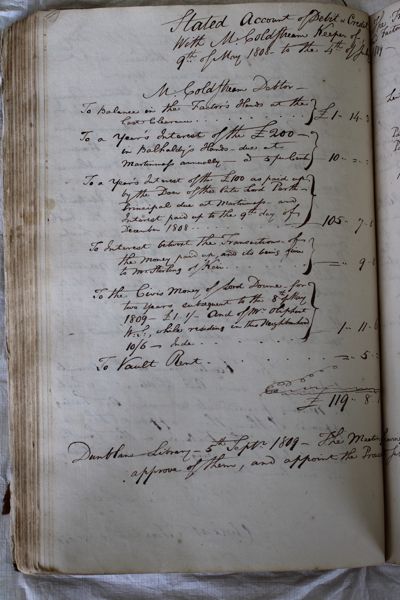 Stated Account of Debit & Credit
With Mr. Coldstream Keeper of
9th of May 1808 to the 4th of
Mr. Coldstream Debtor
To Balance in the Factor's Hands at the
last Clearance £1 - 14 -
To a Year's Interest of the £200
in Balhaldy's Hands due at
Martinmass annually - @ 5 per Cent 10 - = -
To a Year's Interest of the £100 as paid up
by the Doer of the late Lord Perth
Principal due at Martinmass - and
Interest paid up to the 9th day of
December 1808 105 - 7 -
To Interest betwixt the Transactions of
the Money paid up, and its being given
to Mr Stirling of Keir = 9 -
To the Civis Money of Lord Doune for
two years subsequent to the 8th May
1809 - £1 1/- And of Mr Oliphant
W.S., while residing in this Neighbourhood
10/6 - Inde 1 - 11 - 6
To Vault Rent = 5 :
£ 119 - 8
Dunblane Library - 5th Septr 1809 - The Meeting
approve of them, and appoint the